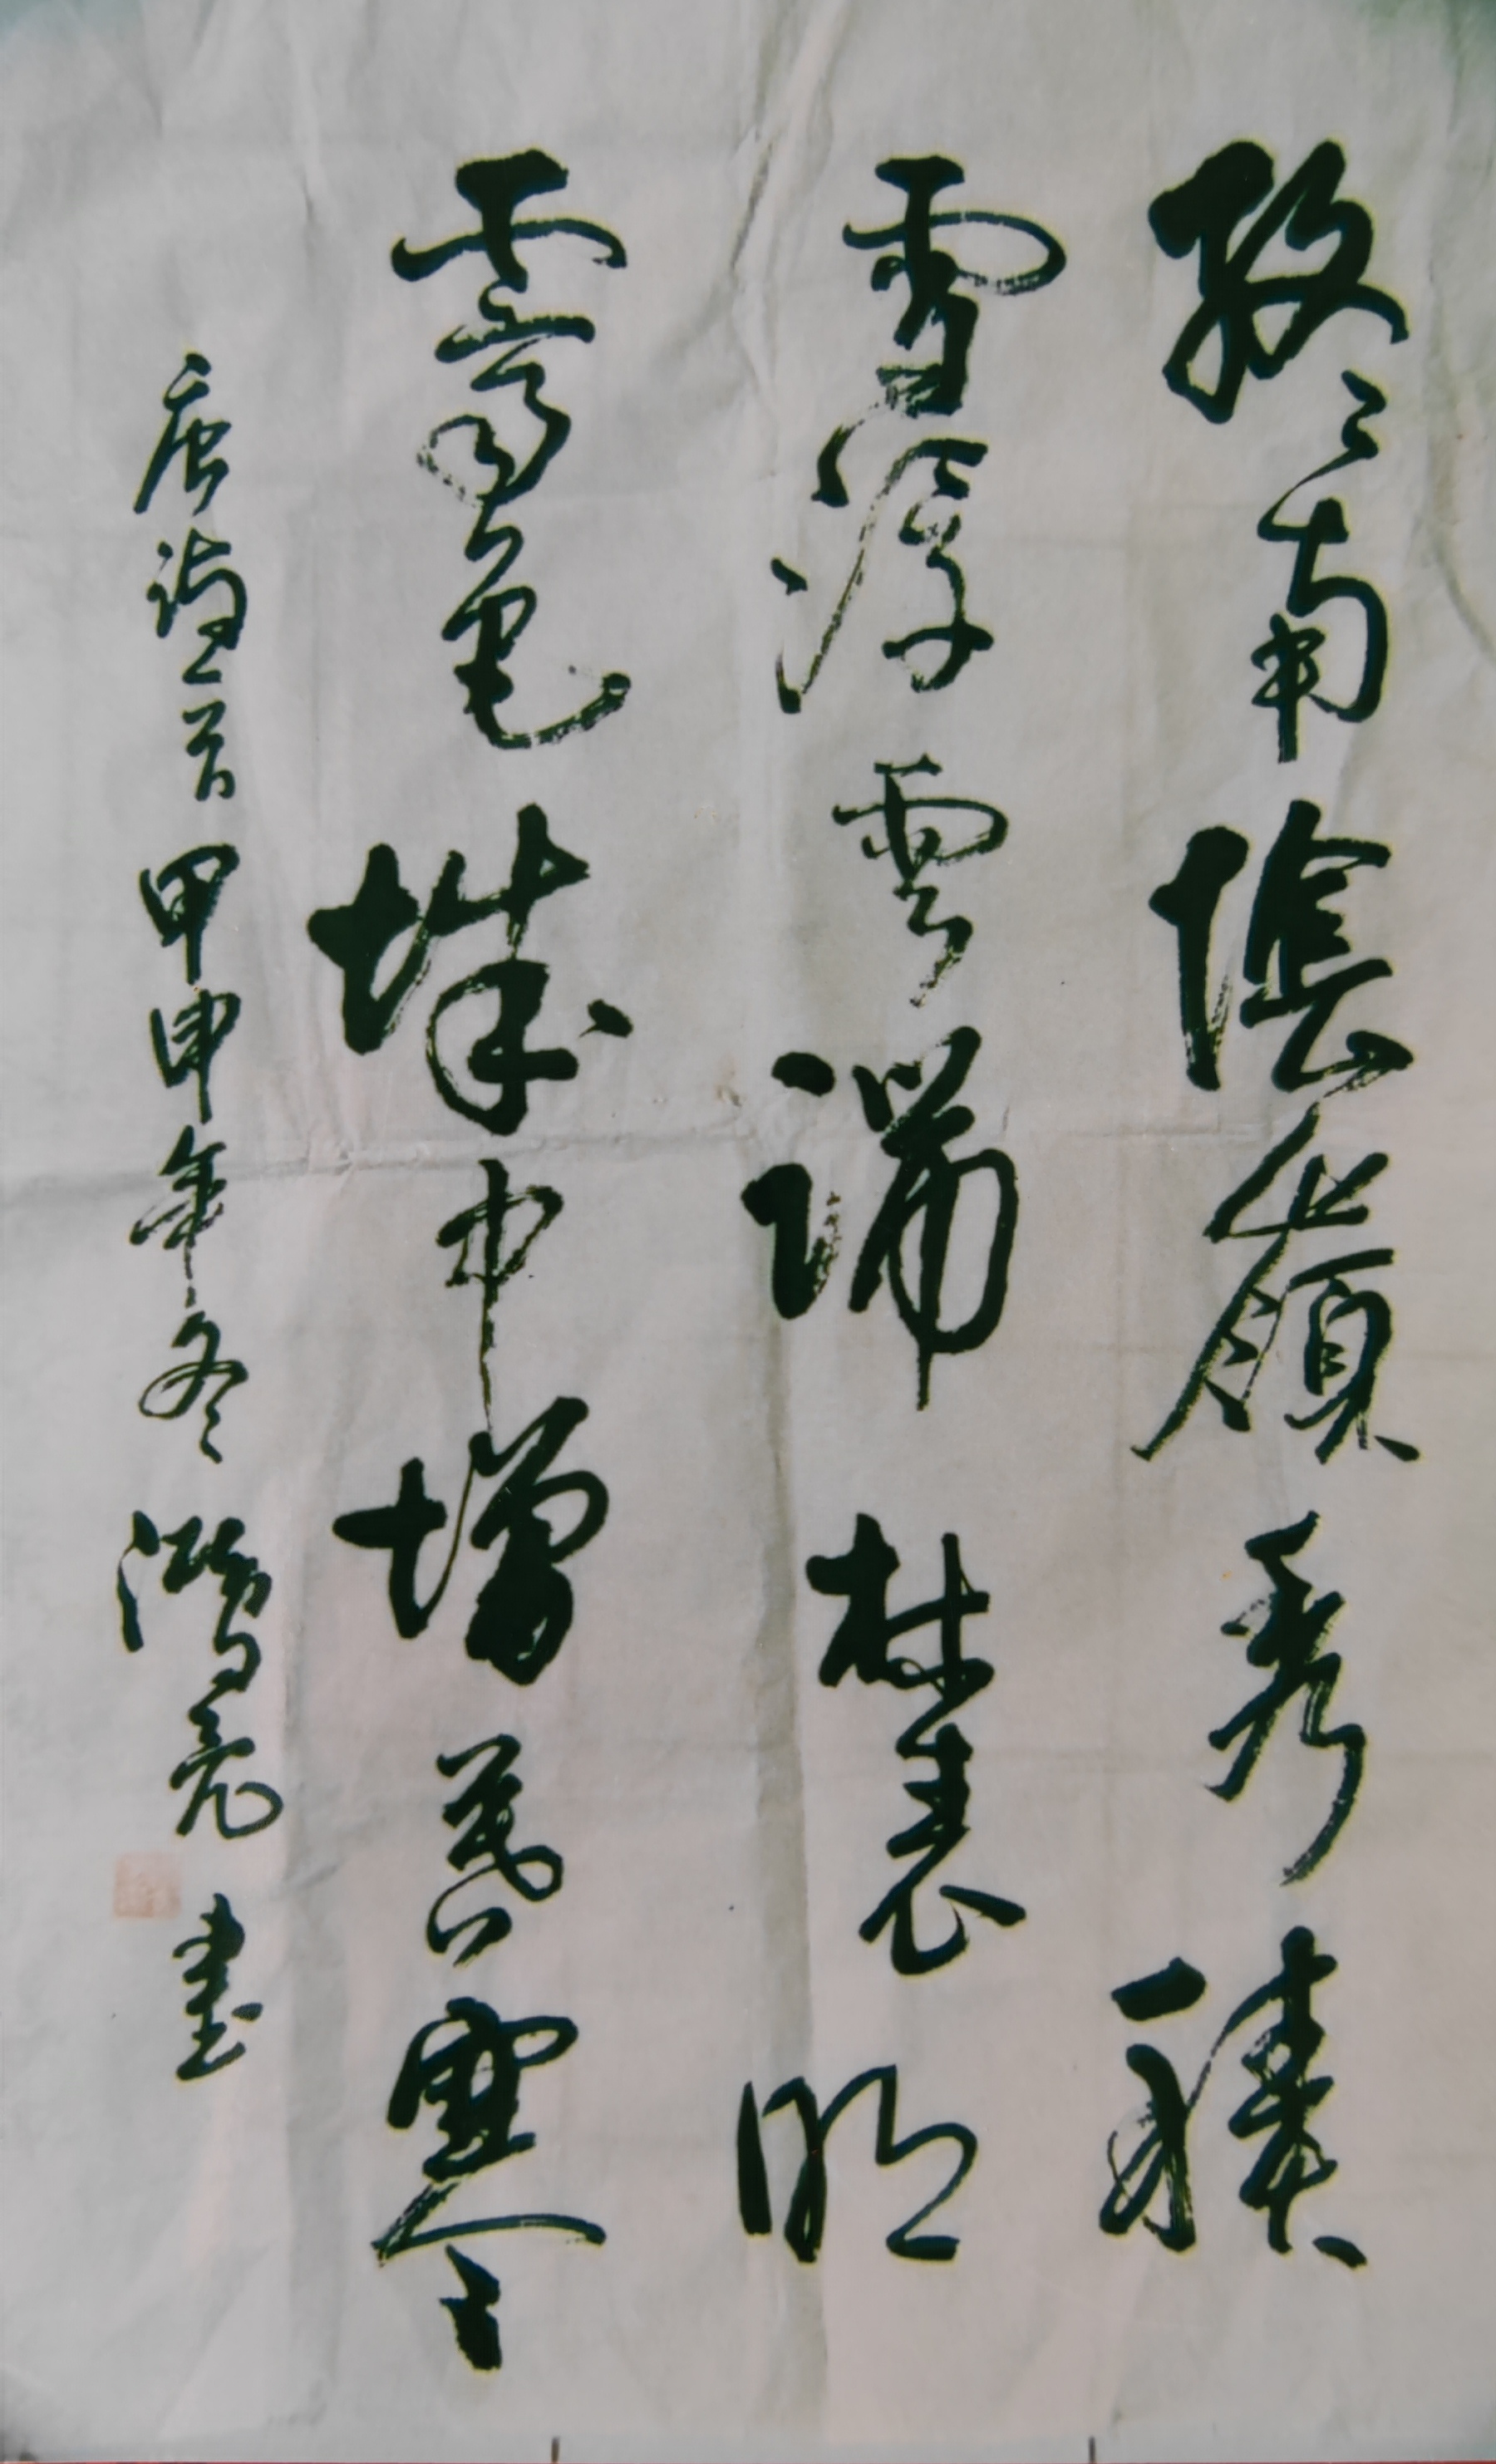 終南陰嶺秀積
雪浮雲端林表明
霽色城中增暮寒
唐詩一首甲申年冬鴻亮書